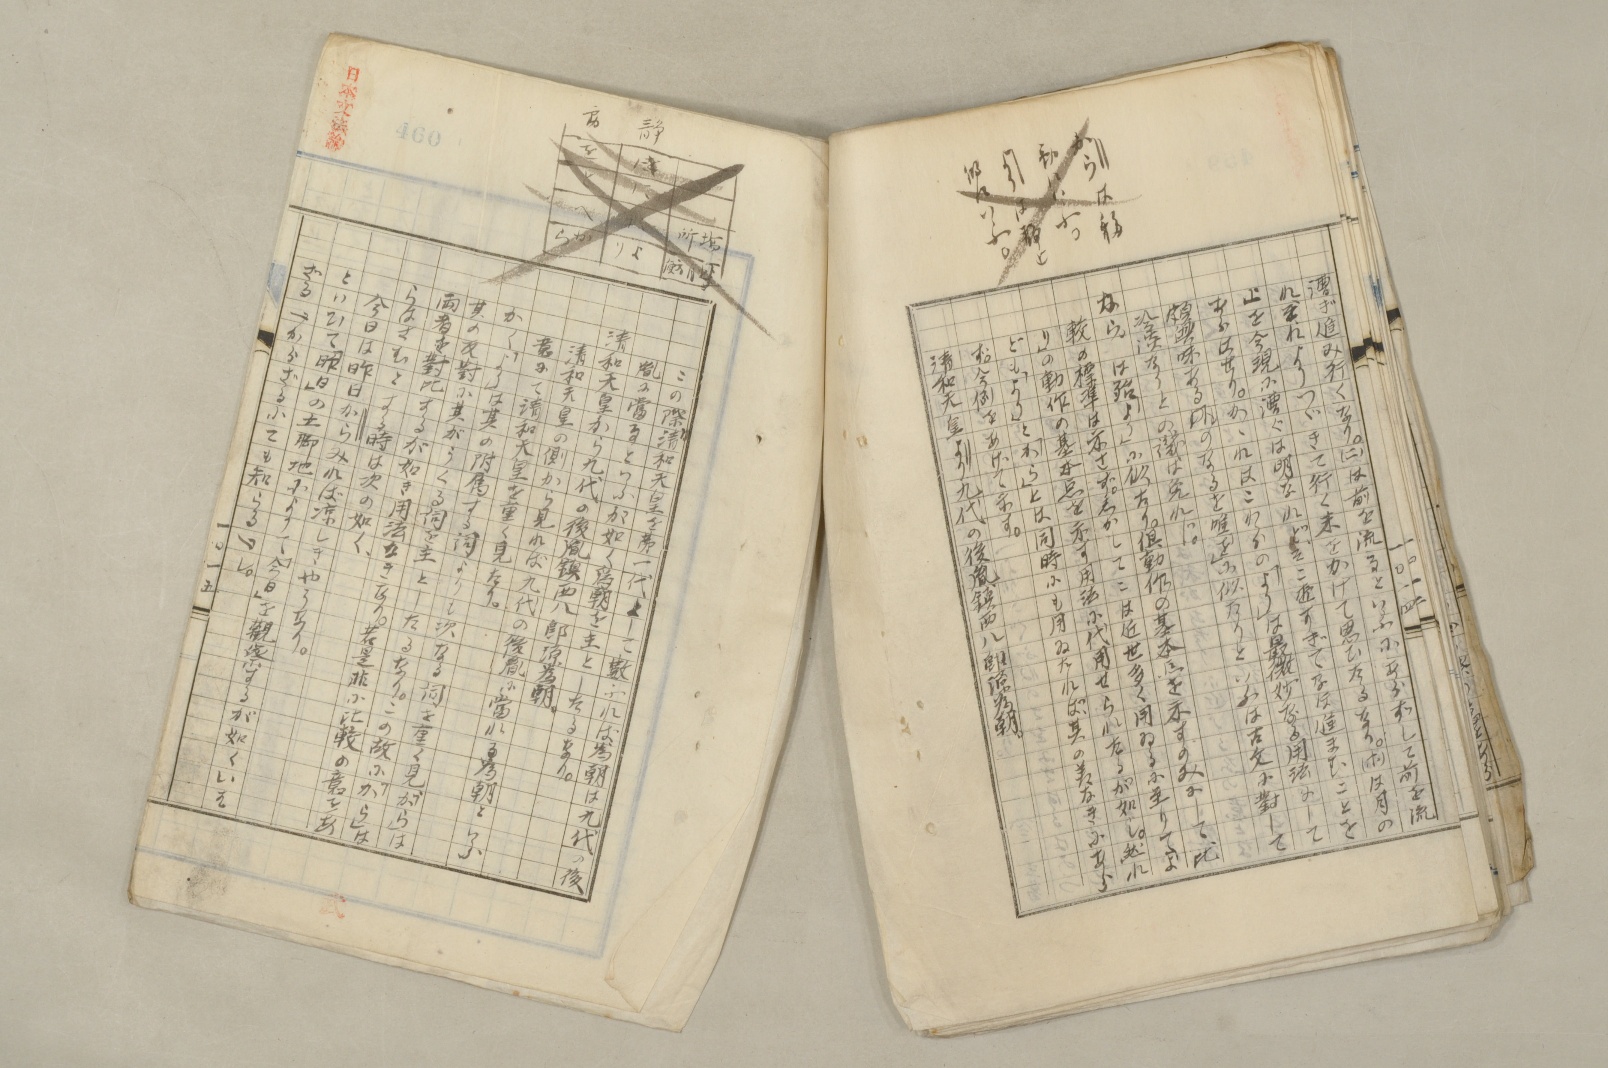 漕ぎ進み行くなり。(ニ)は前を流るといふにあらずして前を流
れそれよりつゞきて行く末をかけて思ひたるなり。(ホ)は月の
山を今現に漕ぐは明なれど、そこ過ぎてなほ進まむことを
あらはせり。かゝればこれらの「より」は最微妙なる用法にして
頗興味あるものなるを唯「を」に似たりといふは古文に対して
冷淡なりとの譏は免れじ。
「から」は略「より」に似たり。倶動作の基本点を示すのみにて比
較の標準は示さず。しかしてこは近世多く用ゐるに至りてよ
り」の動作の基本点を示す用法に代用せられたるが如し。然れ
ども「より」と「から」とは同時にも用ゐたれば其の差なきにあら
ず。今例をあげて示す。
清和天皇より九代の後胤鎮西八郎源為朝。
一〇一四
この際清和天皇を第一代として数ふれば為朝は九代の後
胤に当るといふが如く為朝を主としたるなり。
清和天皇から九代の後胤鎮西八郎源為朝。
清和天皇の側から見れば九代の後胤に当れる為朝といふ
意にて清和天皇を重く見たり。
かく「より」は其の附属する詞よりも次なる詞を重く見「から」は
其の反対に其がつく詞を主としたるなり。この故に「から」は
両者を対比するが如き用法なきなり。若是非に比較の意をあ
らはさむとする時は次の如く、
今日は昨日からみれば涼しきやうなり。
といひて「昨日」の立脚地によりて「今日」を観察するが如くいは
ざるべからざるにても知らるべし。
一〇一五
日本文法論
460
静
場所
時間
より
から